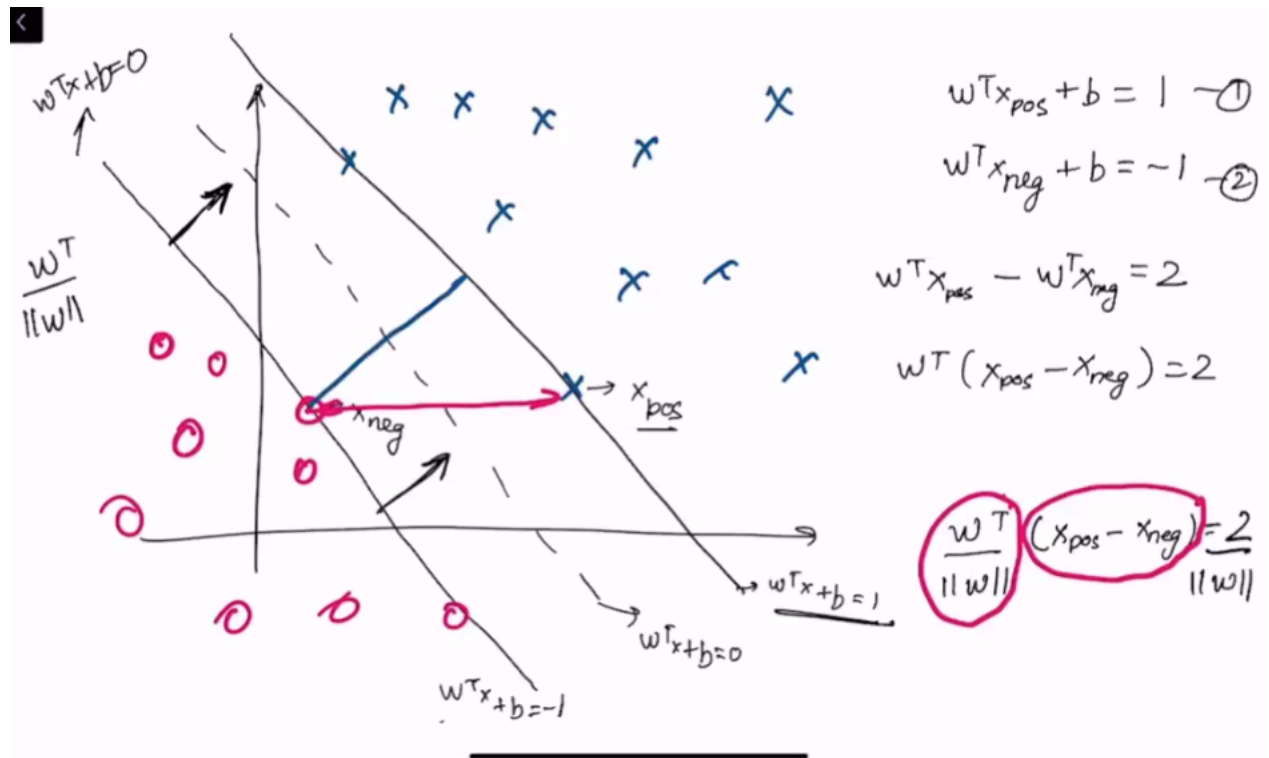 wᵀx+b=0
wᵀ
||w||
x_neg
x_pos
wᵀx+b=1
wᵀx+b=0
wᵀx+b=-1
wᵀx_pos + b = 1 - ①
wᵀx_neg + b = -1 - ②
wᵀx_pos - wᵀx_neg = 2
wᵀ(x_pos - x_neg) = 2
wᵀ (x_pos - x_neg) = 2
||w|| ||w||